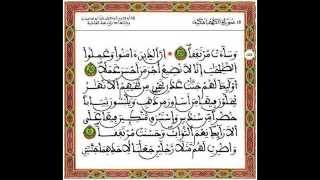 سورة الكهف مكية
وَسَآءَتْ مُرْتَفَقًا إِنَّ ٱلذِينَ ءَامَنُوا وَعَمِلُوا
ٱلصَّٰلِحَٰتِ إِنَّا لَا نُضِيعُ أَجْرَ مَنْ أَحْسَنَ عَمَلًا
أُوْلَٰٓئِكَ لَهُمْ جَنَّٰتُ عَدْنٍ تَجْرِي مِن تَحْتِهِمُ ٱلْأَنْهَٰرُ
يُحَلَّوْنَ فِيهَا مِنْ أَسَاوِرَ مِن ذَهَبٍ وَيَلْبَسُونَ ثِيَابًا
خُضْرًا مِّن سُندُسٍ وَإِسْتَبْرَقٍ مُّتَّكِـِٔينَ فِيهَا عَلَى
ٱلْأَرَآئِكِ نِعْمَ ٱلثَّوَابُ وَحَسُنَتْ مُرْتَفَقًا
وَٱضْرِبْ لَهُم مَّثَلًا رَّجُلَيْنِ جَعَلْنَا لِأَحَدِهِمَا جَنَّتَيْنِ